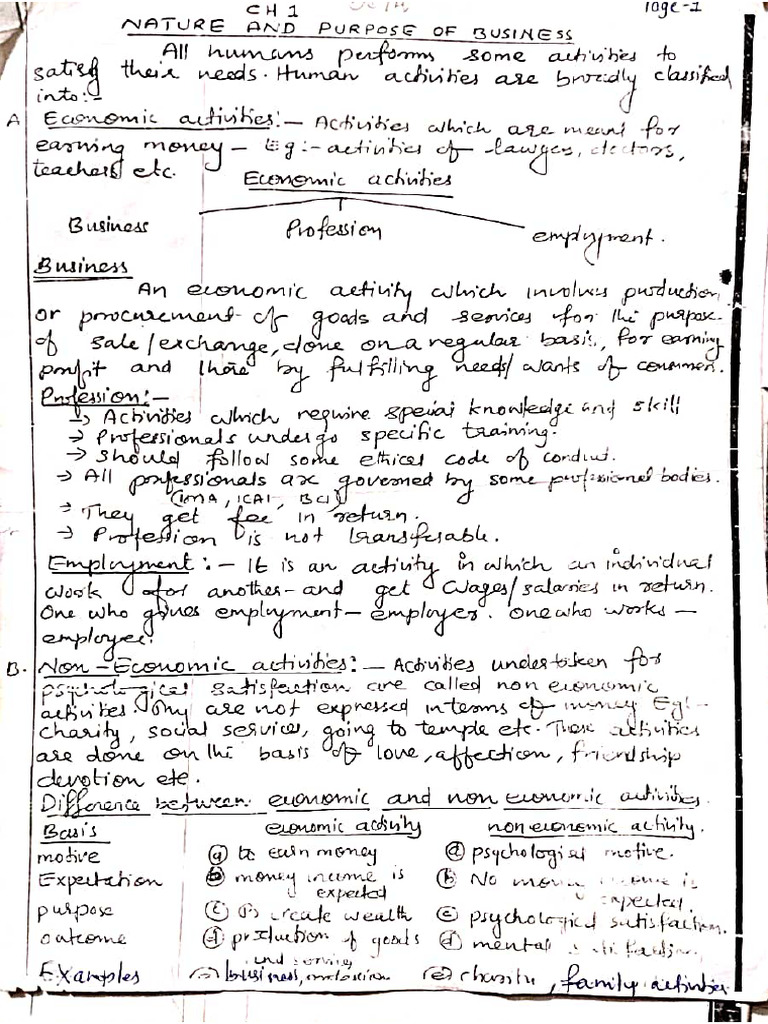 CH 1
Page-1
NATURE AND PURPOSE OF BUSINESS
All humans performs some activities to
satisfy their needs. Human activities are broadly classified
into:-
A Economic activities:- Activities which are meant for
earning money - Eg:- activities of lawyers, doctors,
teachers etc.
Economic activities
Business Profession employment.
Business
An economic activity which involves production
or procurement of goods and services for the purpose
of sale/exchange, done on a regular basis, for earning
profit and there by fulfilling needs/wants of consumers.
Profession:-
→ Activities which require special knowledge and skill
→ Professionals undergo specific training.
→ Should follow some ethical code of conduct.
→ All professionals are governed by some professional bodies.
(IMA, ICAI, BCI)
→ They get fee in return.
→ Profession is not transferable.
Employment:- It is an activity in which an individual
work for another and get wages/salaries in return.
One who gives employment - employer. One who works -
employee.
B. Non-Economic activities:- Activities undertaken for
psychological satisfaction are called non economic
activities. They are not expressed in terms of money Eg:-
charity, social service, going to temple etc. These activities
are done on the basis of love, affection, friendship
devotion etc.
Difference between economic and non economic activities.
Basis economic activity non economic activity.
motive (a) to earn money (a) psychological motive.
Expectation (b) money income is (b) No money income is
expected expected.
purpose (c) to create wealth (c) psychological satisfaction.
outcome (d) production of goods (d) mental satisfaction.
and service
Examples business, profession (e) charity, family activities